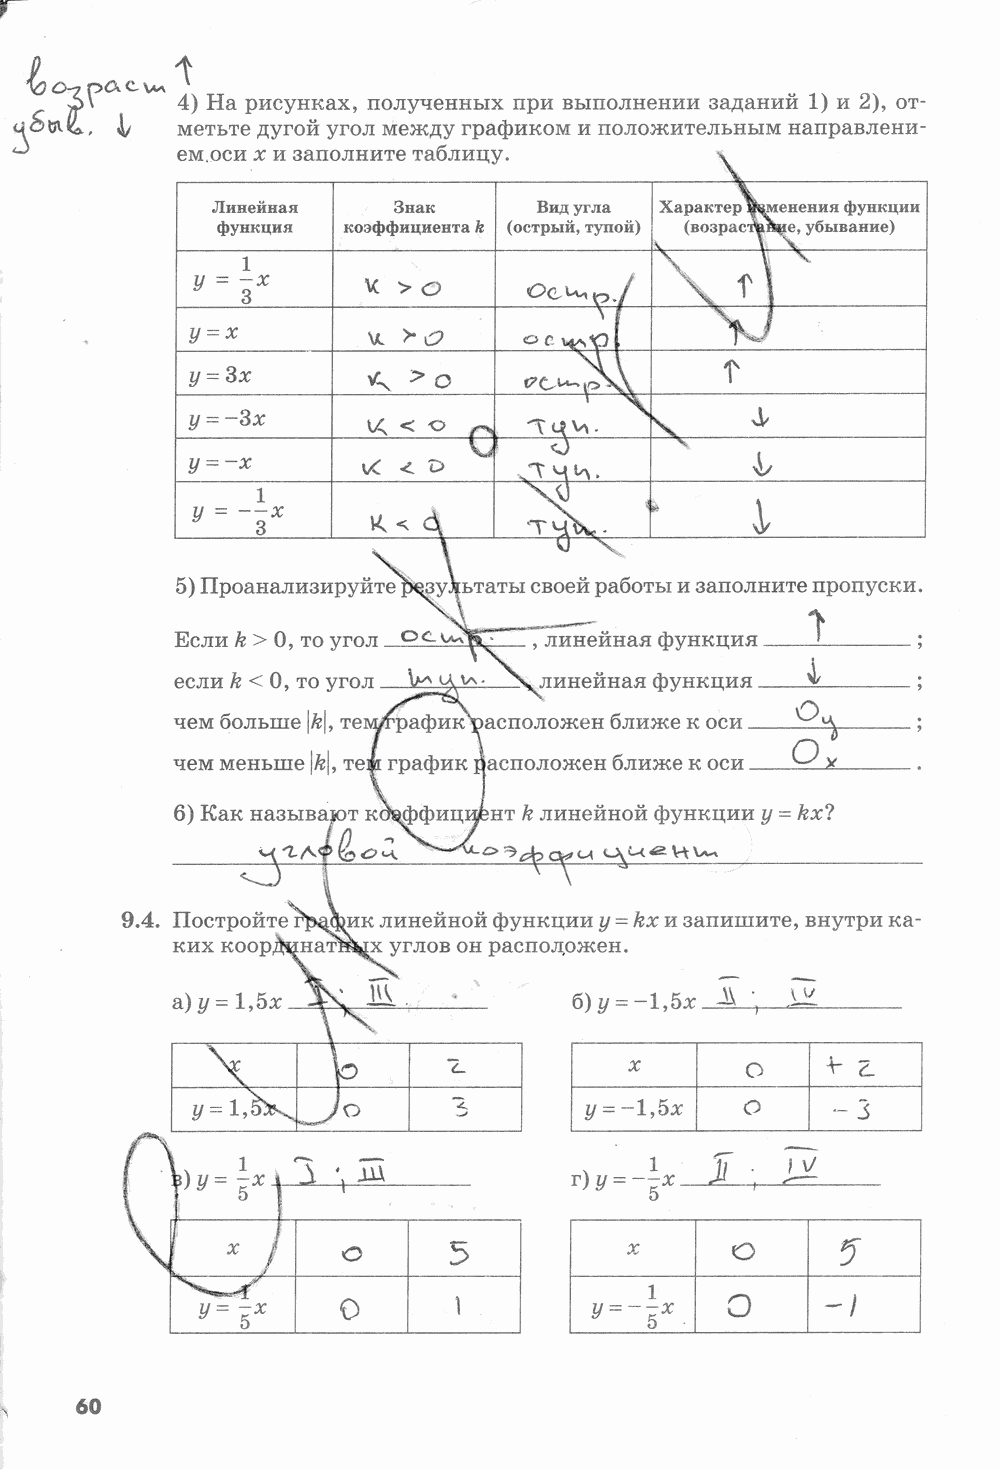 возраст ↑
убыв. ↓
4) На рисунках, полученных при выполнении заданий 1) и 2), от-
метьте дугой угол между графиком и положительным направлени-
ем оси x и заполните таблицу.
Линейная функция | Знак коэффициента k | Вид угла (острый, тупой) | Характер изменения функции (возрастание, убывание)
y = 1/3 x | к > 0 | остр. | ↑
y = x | к > 0 | остр. | ↑
y = 3x | к > 0 | остр. | ↑
y = −3x | к < 0 | туп. | ↓
y = −x | к < 0 | туп. | ↓
y = −1/3 x | к < 0 | туп. | ↓
5) Проанализируйте результаты своей работы и заполните пропуски.
Если k > 0, то угол остр. , линейная функция ↑ ;
если k < 0, то угол туп. , линейная функция ↓ ;
чем больше |k|, тем график расположен ближе к оси Oy ;
чем меньше |k|, тем график расположен ближе к оси Ox .
6) Как называют коэффициент k линейной функции y = kx?
угловой коэффициент
9.4. Постройте график линейной функции y = kx и запишите, внутри ка-
ких координатных углов он расположен.
а) y = 1,5x I ; III б) y = −1,5x II ; IV
x | 0 | 2 x | 0 | + 2
y = 1,5x | 0 | 3 y = −1,5x | 0 | −3
в) y = 1/5 x I ; III г) y = −1/5 x II ; IV
x | 0 | 5 x | 0 | 5
y = 1/5 x | 0 | 1 y = −1/5 x | 0 | −1
60